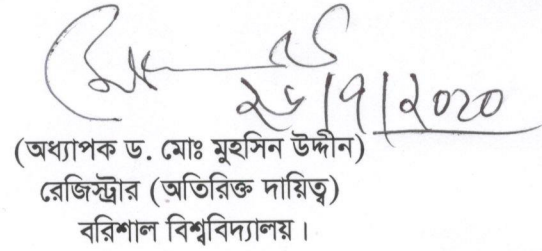 ২৮|৭|২০২০
(অধ্যাপক ড. মোঃ মুহসিন উদ্দীন)
রেজিস্ট্রার (অতিরিক্ত দায়িত্ব)
বরিশাল বিশ্ববিদ্যালয়।